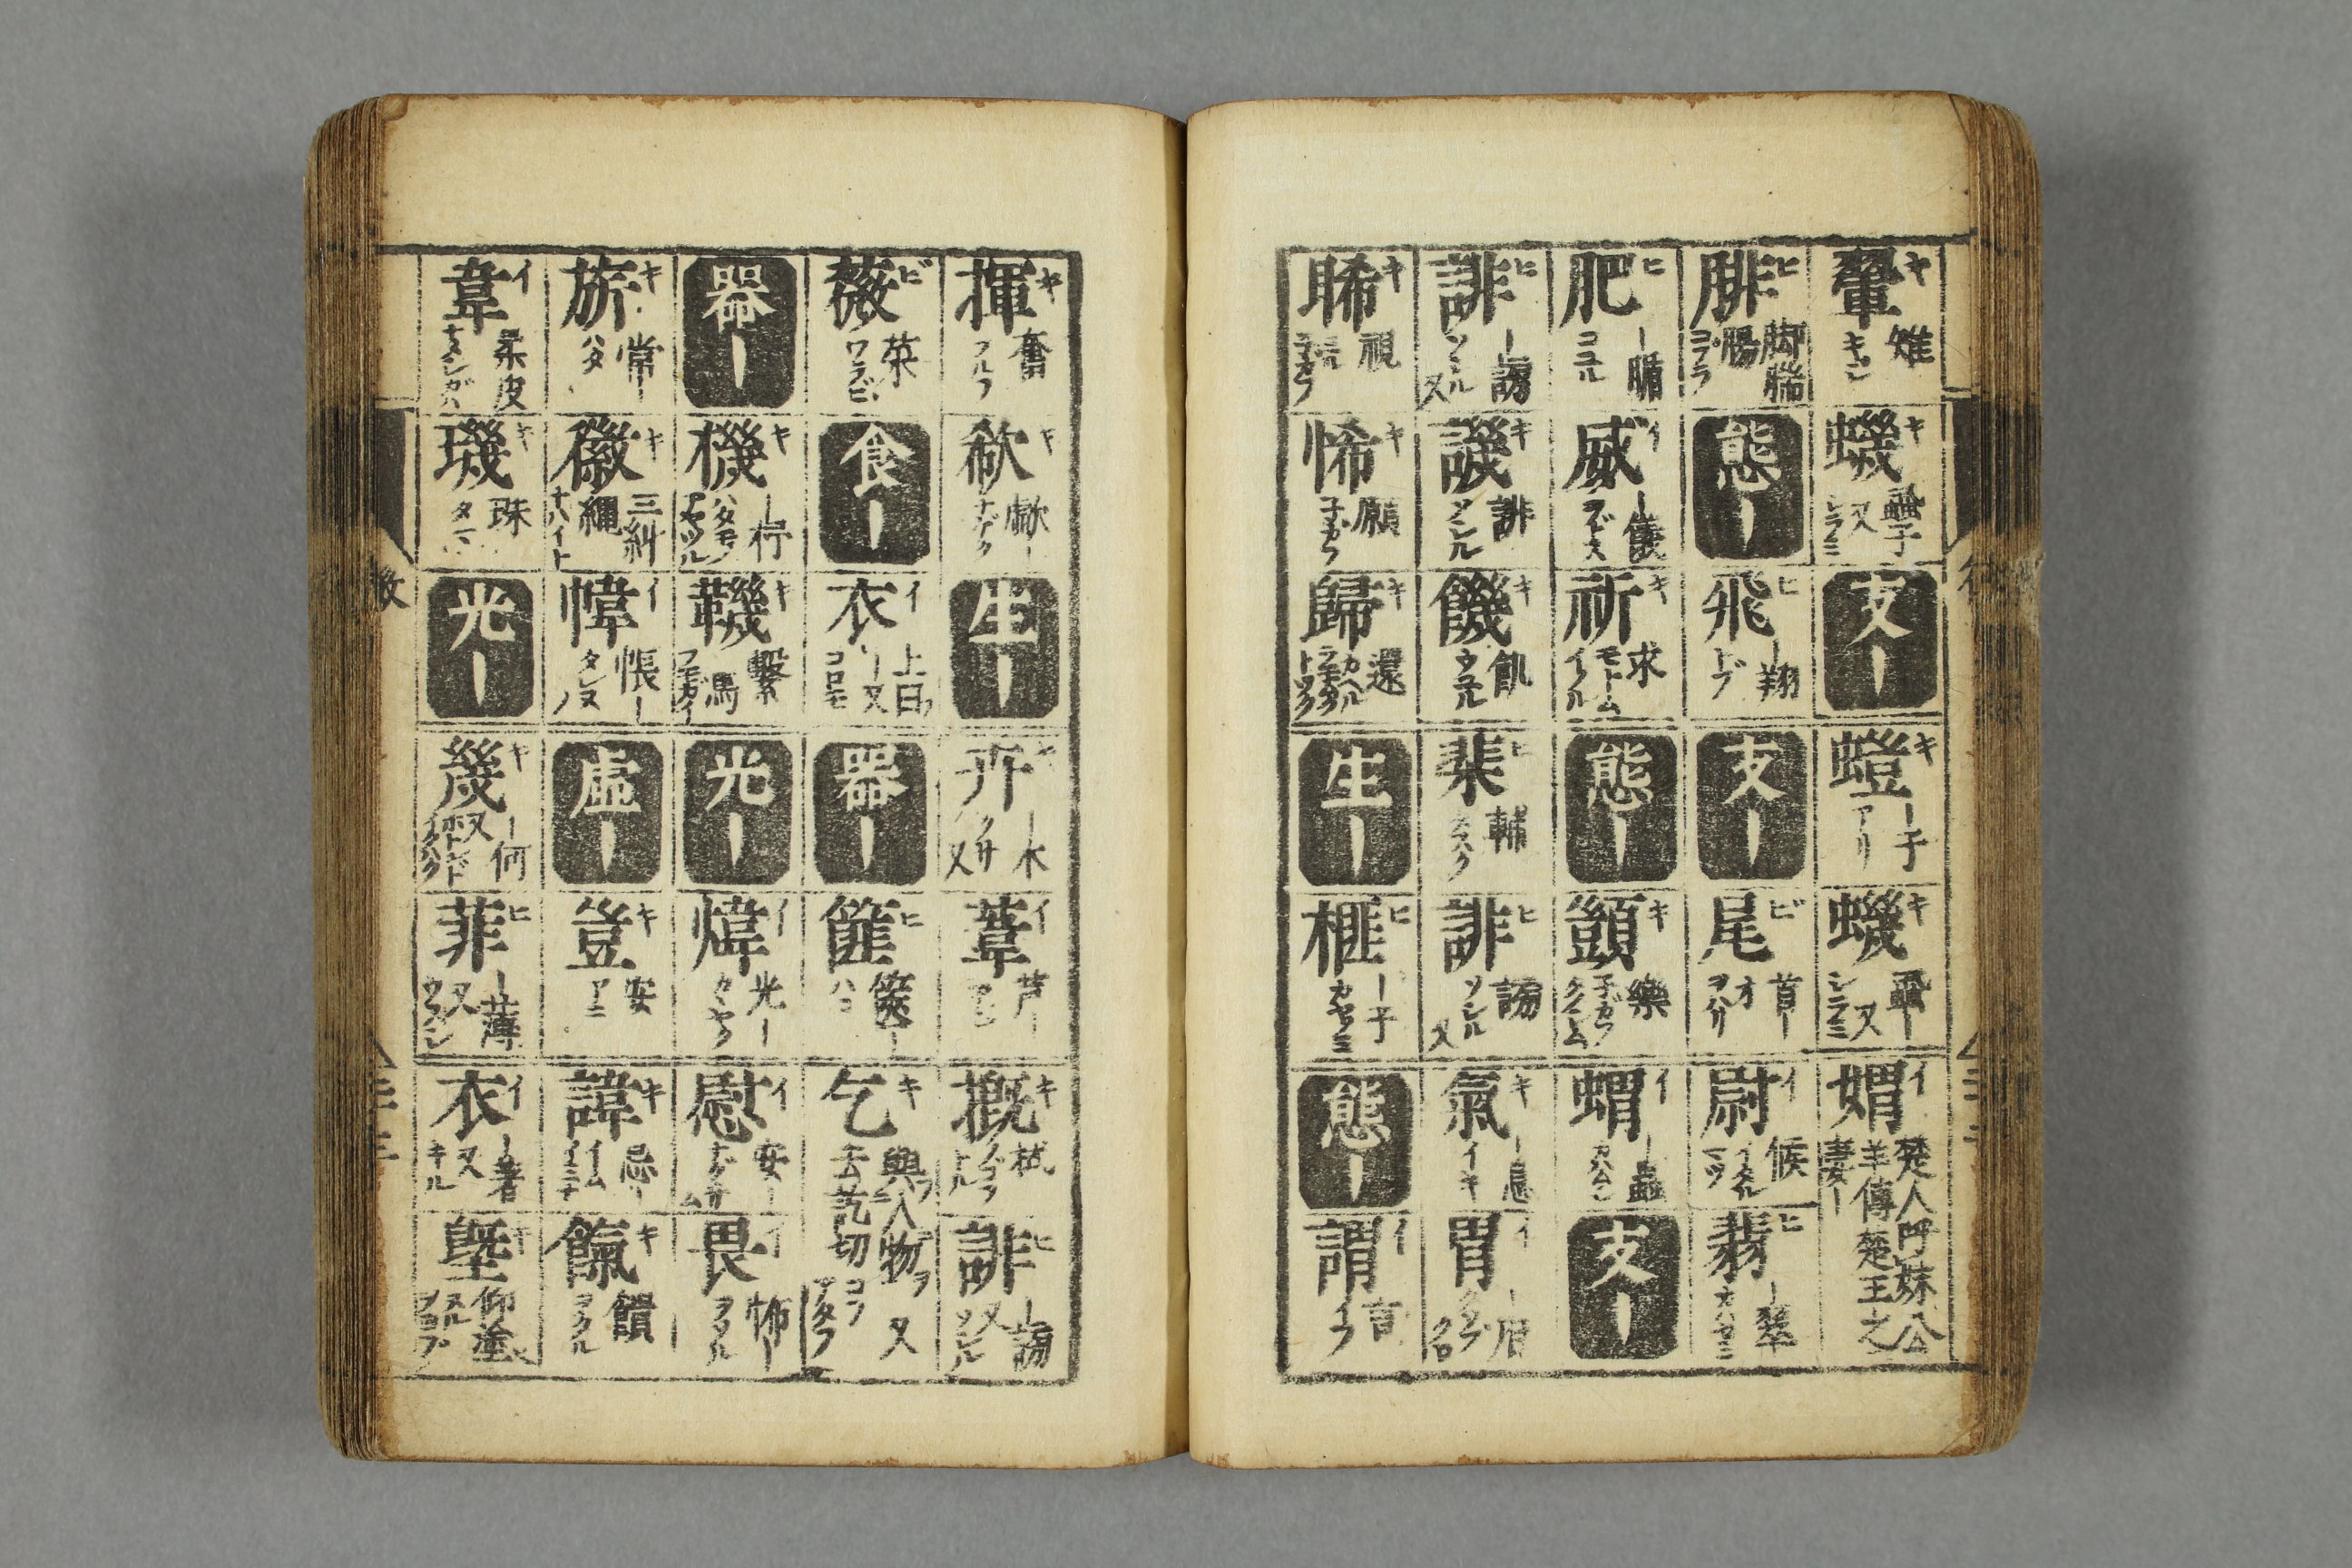 翬 キ 雉 キジ
蟣 キ 蝨子 又 シラミ
支ー
螘 キ ー子 アリ
蟣 キ 蝨ー 又 シラミ
媦 イ 楚人呼妹公羊傳楚王之妻ー
腓 ヒ 脚腨腸 コブラ
態ー
飛 ヒ ー翔 トブ
支ー
尾 ビ 首ー オ ヲハリ
尉 イ 候
翡 ヒ ー翠
肥 ヒ ー腯 コユル
威 イ ー儀
祈 キ 求 モトム イノル
態ー
顗 キ 樂
蝟 イ ー蟲
支ー
誹 ヒ ー謗 ソシル 又
譏 キ 誹 ソシル
饑 キ 飢 ウユル
棐 ヒ 輔 タスク
誹 ヒ 謗 ソシル 又
氣 キ ー息 イキ
胃 イ ー府
睎 キ 視
悕 キ 願 子ガフ
歸 キ 還 カヘル トツグ
生ー
榧 ヒ ー子
態ー
謂 イ 言 イフ
揮 キ 奮 フルフ
欷 キ 歔ー ナゲク
生ー
卉 キ ー木 クサ 又
葦 イ 芦ー アシ
摡 キ 拭 ノゴフ
誹 ヒ ー謗 又 ソシル
薇 ビ 菜 ワラビ
食ー
衣 イ 上曰ー 又 コロモ
器ー
篚 ヒ 篋ー ハコ
乞 キ 與人物 又 去訖切 コフ アタフ
器ー
機 キ ー杼 ハタモノ アヤツル
鞿 キ 繫馬
光ー
煒 イ 光ー カヾヤク
慰 イ 安ー ナグサム
畏 イ 怖ー ヲソル
旂 キ 常ー ハタ
徽 キ 三糾繩
幃 イ 帳ー
虛ー
豈 キ 安 アニ
諱 キ 忌ー イム イミナ
餼 キ 饋 ヲクル
韋 イ 柔皮 ナメシガハ
璣 キ 珠 タマ
光ー
幾 キ ー何 又
菲 ヒ ー薄 又
衣 イ ー著 又 キル
墍 キ 仰塗 ヌル